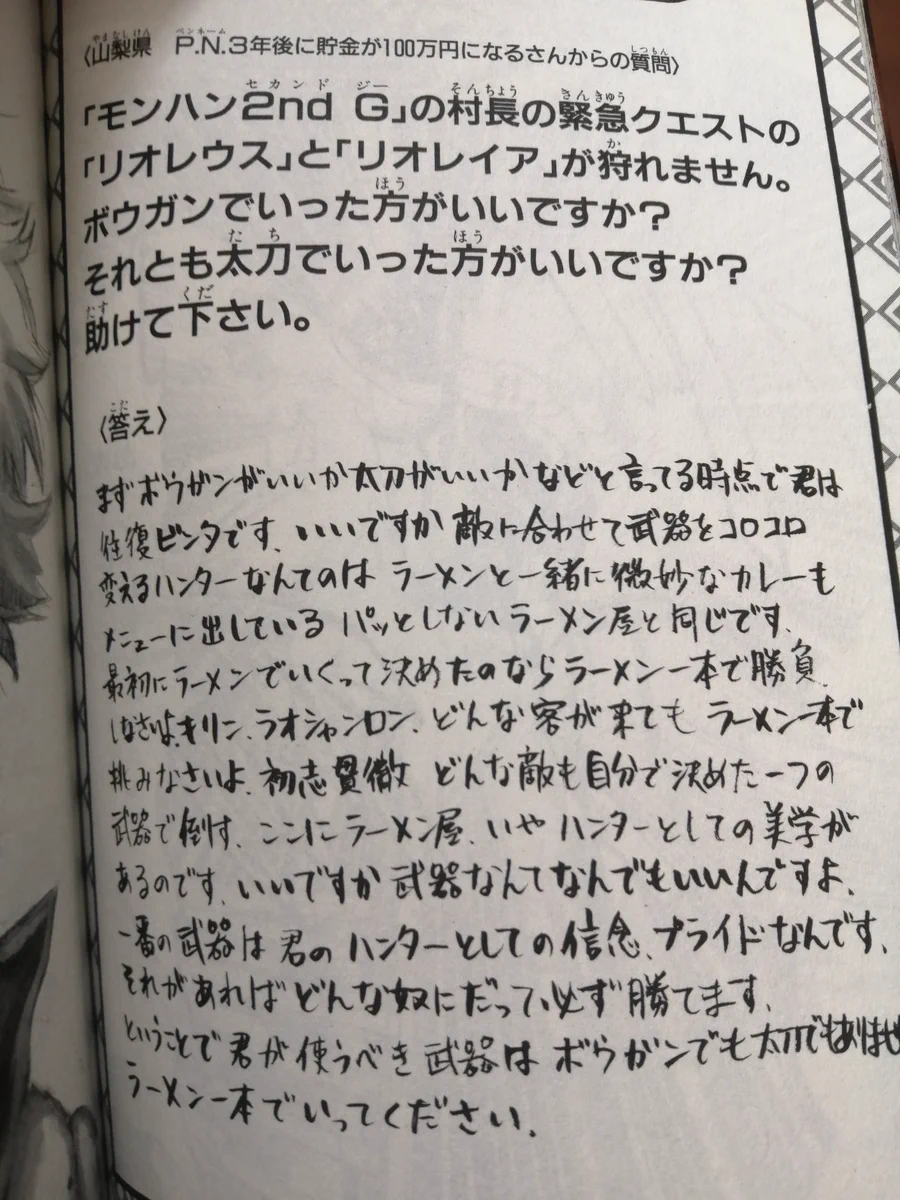 〈山梨県　P.N.3年後に貯金が100万円になるさんからの質問〉
「モンハン2nd G」の村長の緊急クエストの
「リオレウス」と「リオレイア」が狩れません。
ボウガンでいった方がいいですか？
それとも太刀でいった方がいいですか？
助けて下さい。
〈答え〉
まずボウガンがいいか太刀がいいかなどと言ってる時点で君は
往復ビンタです、いいですか敵に合わせて武器をコロコロ
変えるハンターなんてのは ラーメンと一緒に微妙なカレーも
メニューに出している パッとしないラーメン屋と同じです、
最初にラーメンでいくって決めたのならラーメン一本で勝負
しなさいよ、キリン、ラオシャンロン、どんな客が来ても ラーメン一本で
挑みなさいよ、初志貫徹 どんな敵も自分で決めた一つの
武器で倒す、ここにラーメン屋、いや ハンターとしての美学が
あるのです、いいですか 武器なんてなんでもいいんですよ、
一番の武器は 君の ハンターとしての信念、プライドなんです、
それがあれば どんな奴にだって必ず勝てます、
ということで君が使うべき武器は ボウガンでも太刀でもありませ
ラーメン一本でいってください.